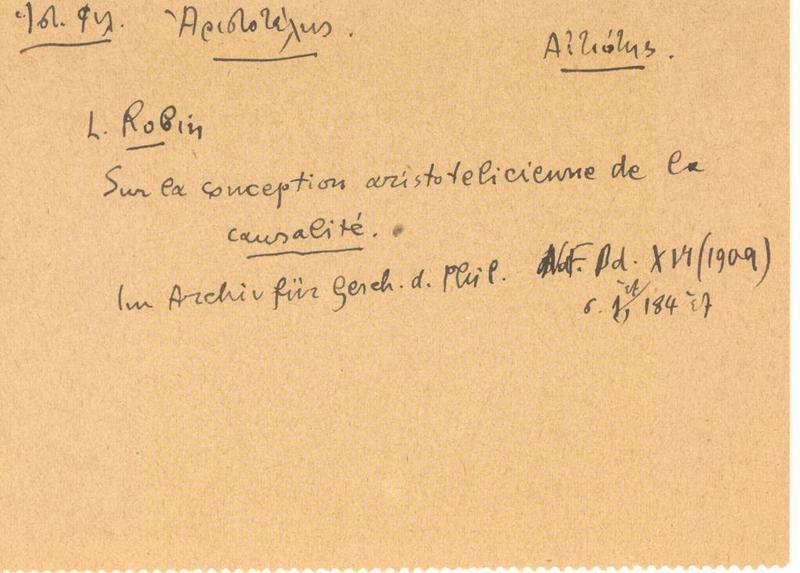 Ἱστ. Φιλ. Ἀριστοτέλης. Αἰτιότης.
L. Robin
Sur la conception aristotelicienne de la
causalité.
Im Archiv für Gesch. d. Phil. Bd. (1909)
σ. 184